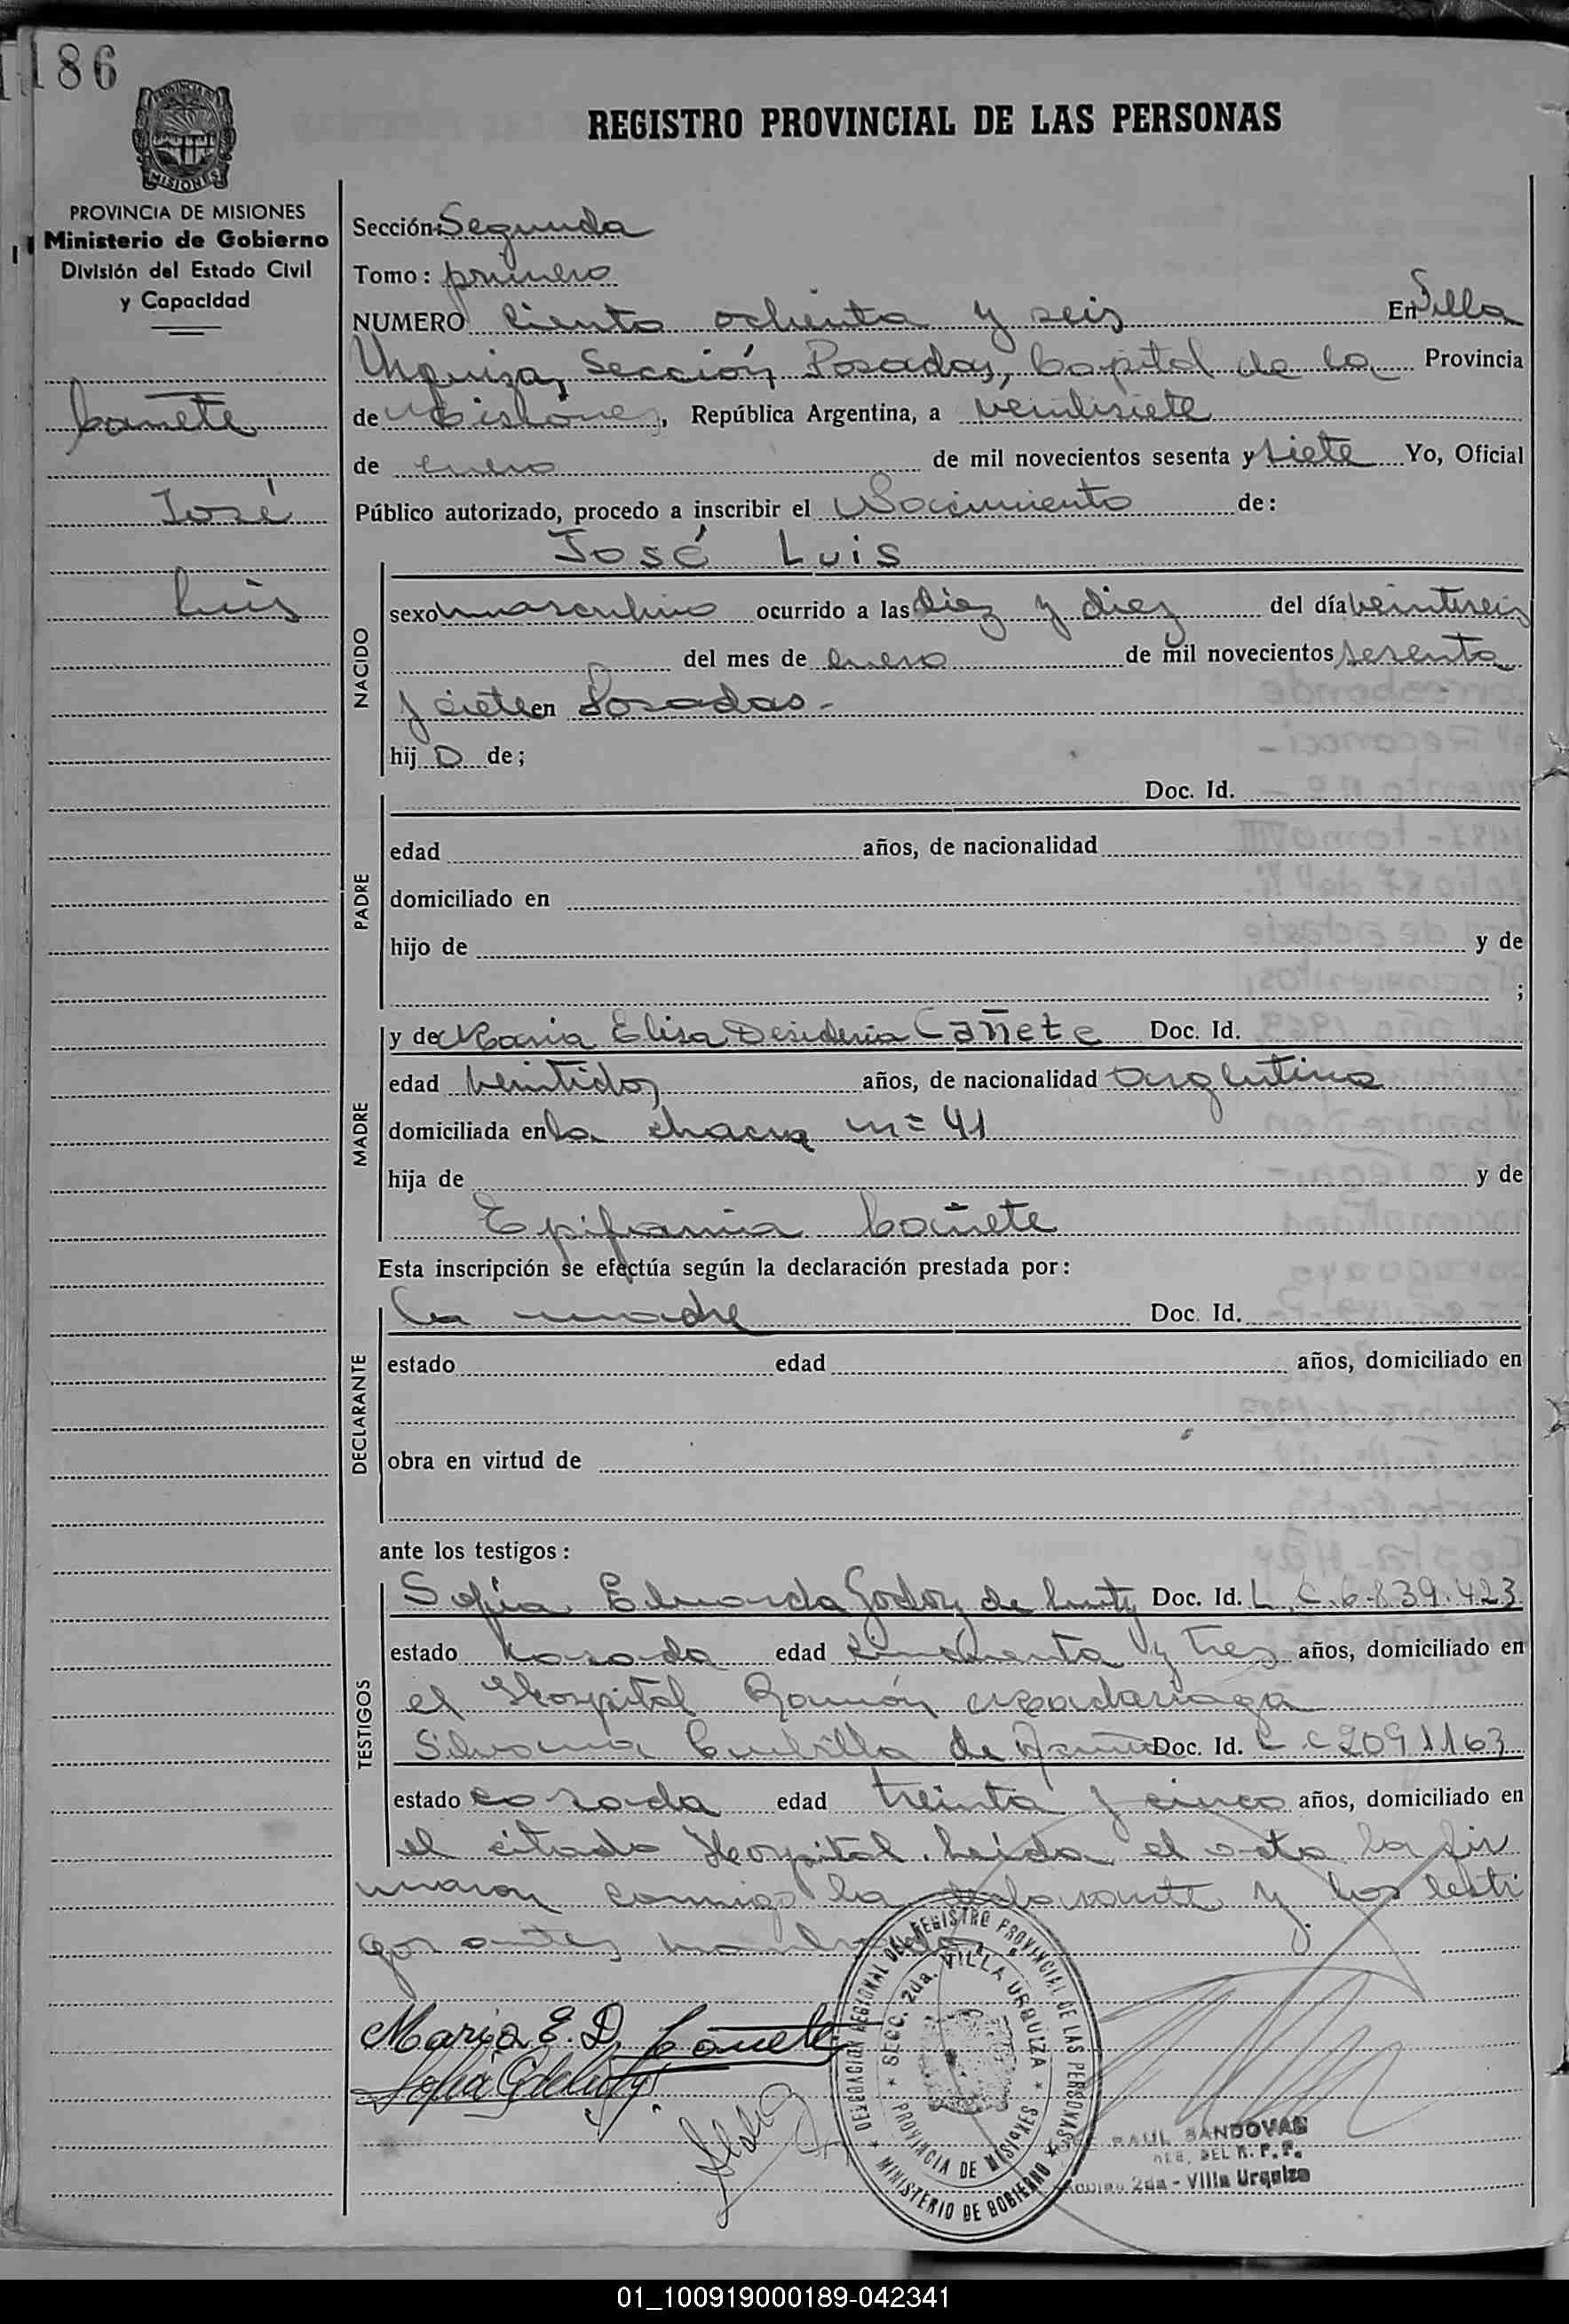 186
REGISTRO PROVINCIAL DE LAS PERSONAS
PROVINCIA DE MISIONES
Ministerio de Gobierno
División del Estado Civil
y Capacidad
Cañete
José
Luis
Sección: Segunda
Tomo: primero
NUMERO Ciento ochenta y seis En Villa
Urquiza, Sección Posadas, Capital de la Provincia
de Misiones, República Argentina, a veintisiete
de enero de mil novecientos sesenta y siete Yo, Oficial
Público autorizado, procedo a inscribir el Nacimiento de:
José Luis
NACIDO
sexo masculino ocurrido a las diez y diez del día veintiseis
del mes de enero de mil novecientos sesenta
y siete en Posadas.-
hij o de;
PADRE
Doc. Id.
edad años, de nacionalidad
domiciliado en
hijo de y de
;
MADRE
y de Maria Elisa Desideria Cañete Doc. Id.
edad veintidos años, de nacionalidad argentina
domiciliada en la chacra n= 41
hija de y de
Epifania Cañete
Esta inscripción se efectúa según la declaración prestada por:
DECLARANTE
La madre Doc. Id.
estado edad años, domiciliado en
obra en virtud de
ante los testigos:
TESTIGOS
Sofia Eduarda Godoy de Doc. Id. L.C. 6.839.423
estado casada edad cincuenta y tres años, domiciliado en
el Hospital Ramón Madariaga
Silvana de Doc. Id. L C 2091163
estado casada edad treinta y cinco años, domiciliado en
el citado Hospital. Leida el acta la fir
maron conmigo la declarante y los testi
gos antes nombrados
Maria E. D. Cañete
Sofia G de
DELEGACION REGIONAL DEL REGISTRO PROVINCIAL DE LAS PERSONAS
SECC. 2da. VILLA URQUIZA
PROVINCIA DE MISIONES
MINISTERIO DE GOBIERNO
RAUL SANDOVAL
DEL R. P. P.
2da - Villa Urquiza
01_100919000189-042341